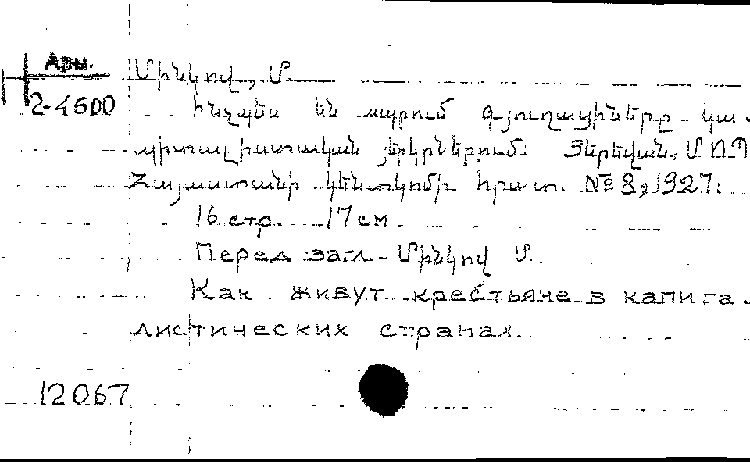 Арм.
2-4600
Մինկով, Մ.
Ինչպես են ապրում գյուղացիները կա-
պիտալիստական յերկրներում. Յերեվան, ՄՈՊ
Հայաստանի կենտկոմի հրատ. №8, 1927.
16 стр. 17 см.
Перед загл. Մինկով Մ.
Как живут крестьяне в капита-
листических странах.
12067